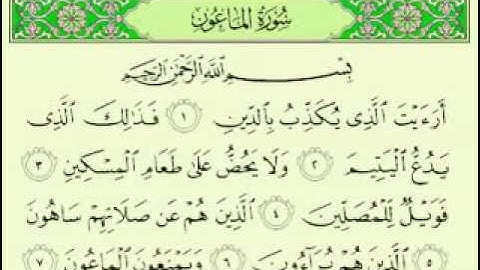 سُورَةُ المَاعُونِ
بِسْمِ اللَّهِ الرَّحْمَٰنِ الرَّحِيمِ
أَرَءَيْتَ ٱلَّذِى يُكَذِّبُ بِٱلدِّينِ ١ فَذَٰلِكَ ٱلَّذِى
يَدُعُّ ٱلْيَتِيمَ ٢ وَلَا يَحُضُّ عَلَىٰ طَعَامِ ٱلْمِسْكِينِ ٣
فَوَيْلٌ لِّلْمُصَلِّينَ ٤ ٱلَّذِينَ هُمْ عَن صَلَاتِهِمْ سَاهُونَ
٥ ٱلَّذِينَ هُمْ يُرَآءُونَ ٦ وَيَمْنَعُونَ ٱلْمَاعُونَ ٧